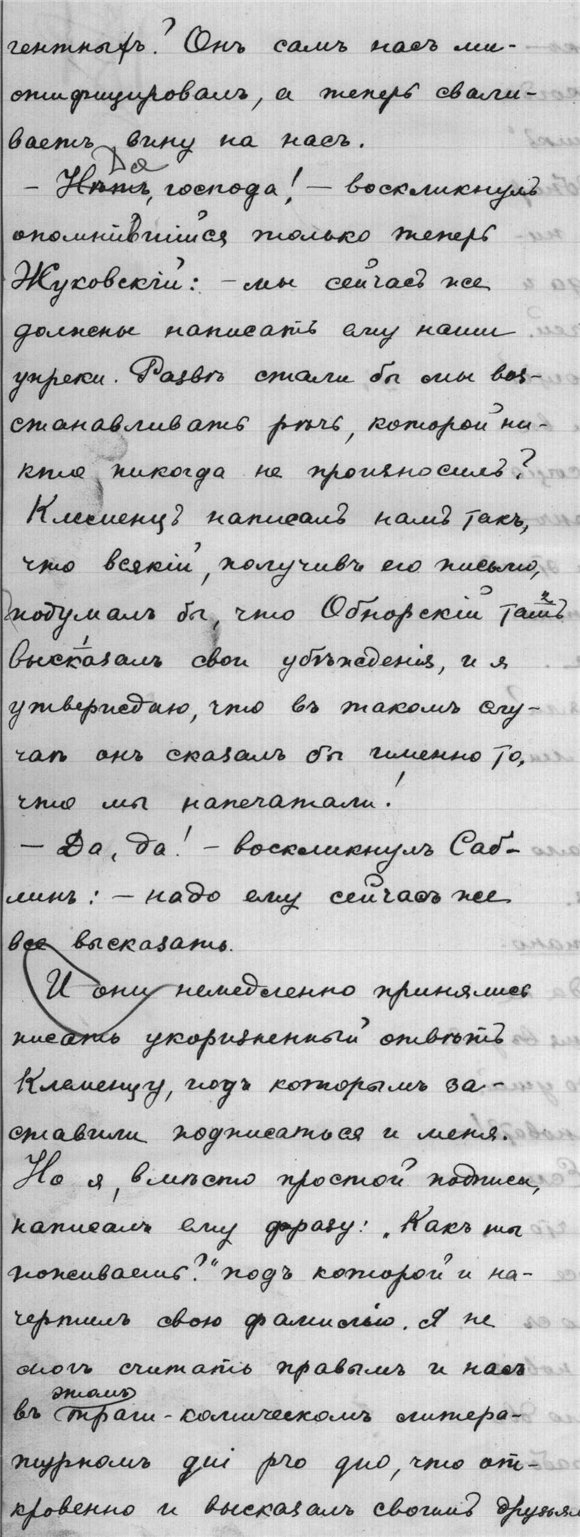 гентныхъ? Онъ самъ насъ ми-
стифицировалъ, а теперь свали-
ваетъ вину на насъ.
Да
— Нѣтъ, господа! — воскликнулъ
опомнившійся только теперь
Жуковскій: — мы сейчасъ же
должны написать ему наши
упреки. Развѣ стали бы мы воз-
станавливать рѣчь, которой ни-
кто никогда не произносилъ?
Клеменцъ написалъ намъ такъ,
что всякій, получивъ его письмо,
подумалъ бы, что Обнорскій тамъ
высказалъ свои убѣжденія, и я
утверждаю, что въ такомъ слу-
чаѣ онъ сказалъ бы именно то,
что мы напечатали!
— Да, да! — воскликнулъ Саб-
линъ: — надо ему сейчасъ же
все высказать.
И они немедленно принялись
писать укоризненный отвѣтъ
Клеменцу, подъ которымъ за-
ставили подписаться и меня.
Но я, вмѣсто простой подписи,
написалъ ему фразу: „Какъ ты
поживаешь?" подъ которой и на-
чертилъ свою фамилію. Я не
могъ считать правымъ и насъ
этомъ
въ траги-комическомъ литера-
турномъ что от-
кровенно и высказалъ своимъ друзьям